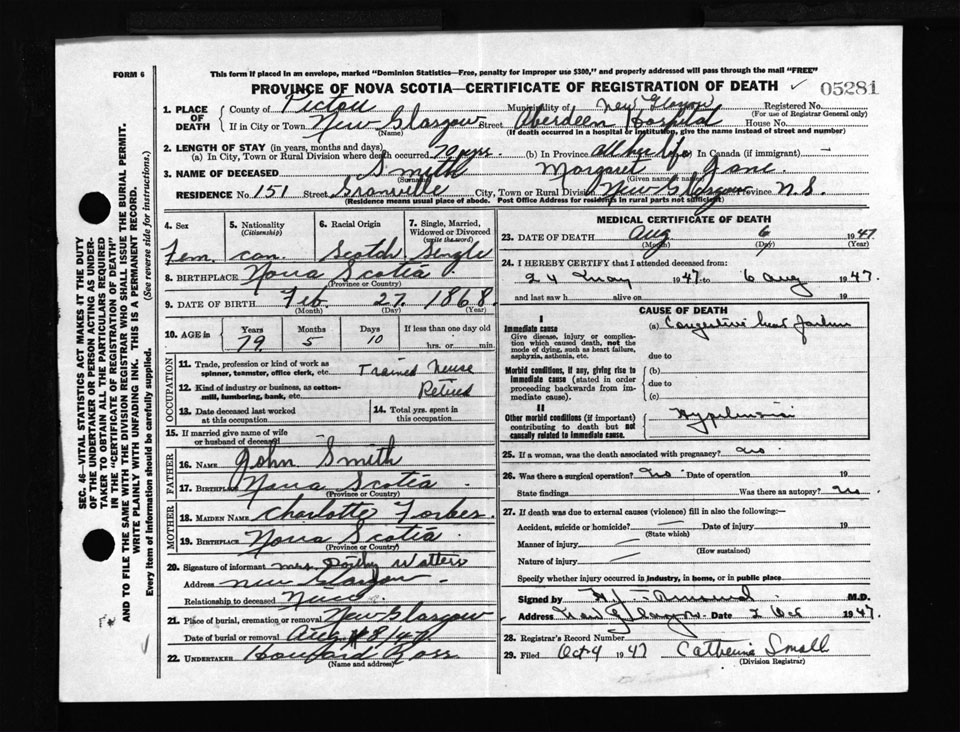 FORM 6
This form if placed in an envelope, marked "Dominion Statistics—Free, penalty for improper use $300," and properly addressed will pass through the mail "FREE"
PROVINCE OF NOVA SCOTIA—CERTIFICATE OF REGISTRATION OF DEATH
05281
1. PLACE OF DEATH
County of Pictou Municipality of New Glasgow Registered No.
(For use of Registrar General only)
If in City or Town New Glasgow Street Aberdeen Hospital House No.
(Name) (If death occurred in a hospital or institution, give the name instead of street and number)
2. LENGTH OF STAY (in years, months and days)
(a) In City, Town or Rural Division where death occurred 70 yrs. (b) In Province all her life In Canada (if immigrant) —
3. NAME OF DECEASED Smith Margaret Jane
(Surname) (Given name or names)
RESIDENCE No. 151 Street Granville City, Town or Rural Division New Glasgow Province N.S.
(Residence means usual place of abode. Post Office Address for residents in rural parts not sufficient)
4. Sex
Fem.
5. Nationality
(Citizenship)
Can.
6. Racial Origin
Scotch
7. Single, Married, Widowed or Divorced
(write the word)
Single
8. BIRTHPLACE Nova Scotia
(Province or Country)
9. DATE OF BIRTH Feb. 27. 1868.
(Month) (Day) (Year)
10. AGE in
Years Months Days If less than one day old
79 5 10 hrs. or min.
OCCUPATION
11. Trade, profession or kind of work as spinner, teamster, office clerk, etc. Trained Nurse
12. Kind of industry or business, as cotton-mill, lumbering, bank, etc. Retired
13. Date deceased last worked at this occupation
14. Total yrs. spent in this occupation
15. If married give name of wife or husband of deceased
FATHER
16. Name John Smith
17. Birthplace Nova Scotia
(Province or Country)
MOTHER
18. Maiden Name Charlotte Forbes.
19. Birthplace Nova Scotia
(Province or Country)
20. Signature of informant Mrs. Dorothy Watters
Address New Glasgow
Relationship to deceased Niece
21. Place of burial, cremation or removal New Glasgow
Date of burial or removal Aug 8/47
22. UNDERTAKER Howard Ross
(Name and address)
MEDICAL CERTIFICATE OF DEATH
23. DATE OF DEATH Aug 6 1947
(Month) (Day) (Year)
24. I HEREBY CERTIFY that I attended deceased from:
24 May 1947 to 6 Aug 1947.
and last saw h alive on 19
CAUSE OF DEATH
I
Immediate cause
Give disease, injury or complication which caused death, not the mode of dying, such as heart failure, asphyxia, asthenia, etc.
(a) Congestive heart failure
due to
Morbid conditions, if any, giving rise to immediate cause (stated in order proceeding backwards from immediate cause).
(b)
due to
(c)
II
Other morbid conditions (if important) contributing to death but not causally related to immediate cause.
Hypertension
25. If a woman, was the death associated with pregnancy? no
26. Was there a surgical operation? no Date of operation 19
State findings Was there an autopsy? no
27. If death was due to external causes (violence) fill in also the following:—
Accident, suicide or homicide? Date of injury 19
(State which)
Manner of injury
(How sustained)
Nature of injury
Specify whether injury occurred in industry, in home, or in public place
Signed by M.D.
Address New Glasgow Date 2 Oct 1947
28. Registrar's Record Number
29. Filed Oct 4 1947 Catherine Small
(Division Registrar)
SEC. 46—VITAL STATISTICS ACT MAKES IT THE DUTY
OF THE UNDERTAKER OR PERSON ACTING AS UNDER-
TAKER TO OBTAIN ALL THE PARTICULARS REQUIRED
IN THE "CERTIFICATE OF REGISTRATION OF DEATH"
AND TO FILE THE SAME WITH THE DIVISION REGISTRAR WHO SHALL ISSUE THE BURIAL PERMIT.
WRITE PLAINLY WITH UNFADING INK. THIS IS A PERMANENT RECORD.
Every item of information should be carefully supplied. (See reverse side for instructions.)